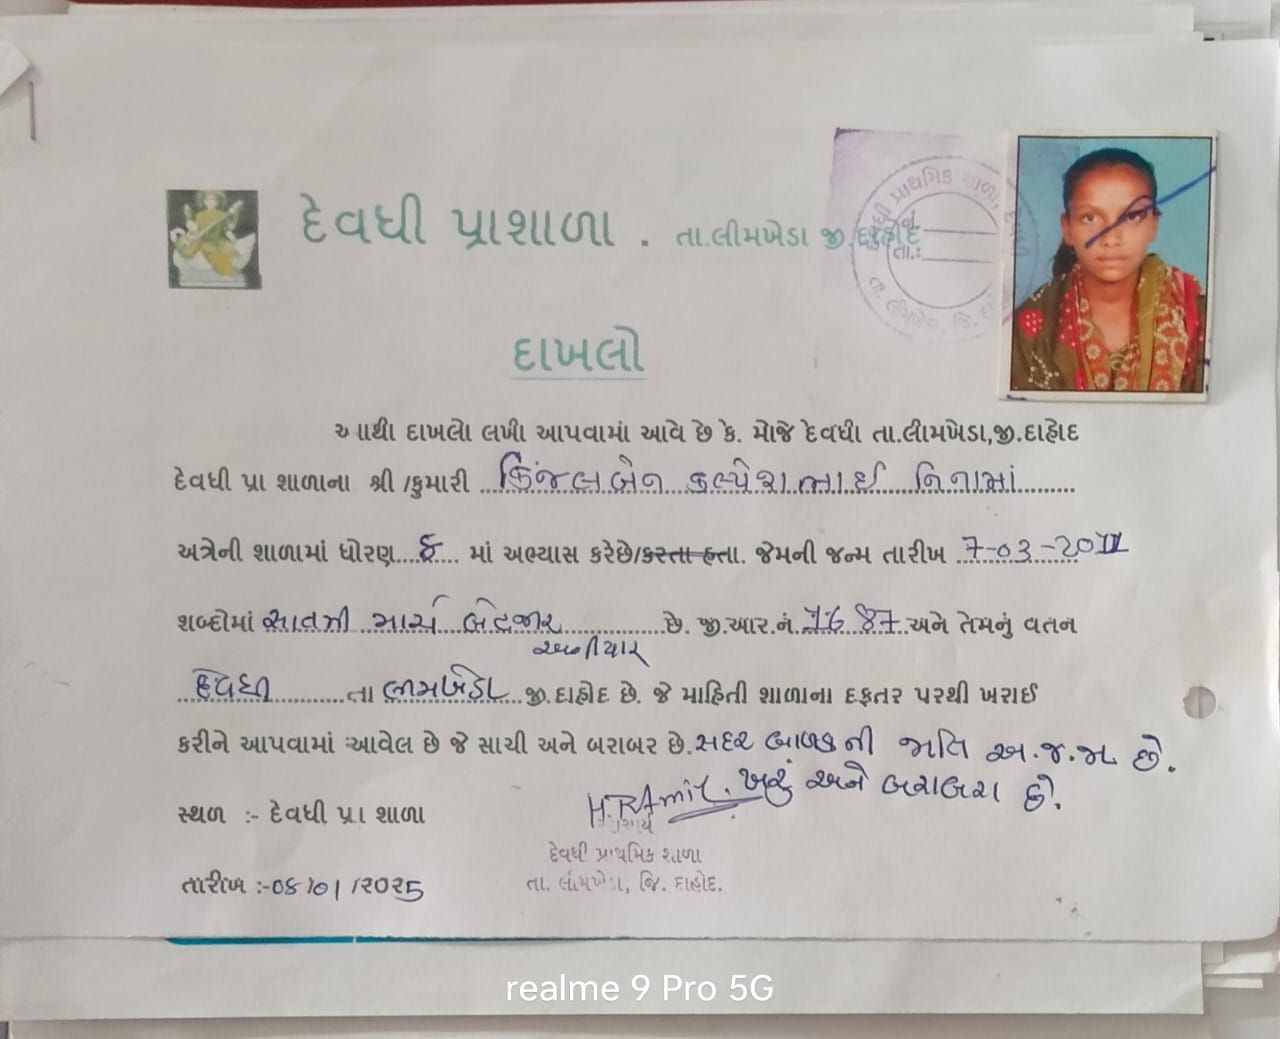 દેવધી પ્રાશાળા . તા.લીમખેડા જી.દાહોદ
દેવધી પ્રાથમિક શાળા,
નં.
તા.:
તા. લીમખેડા, જિ. દા
દાખલો
આથી દાખલો લખી આપવામાં આવે છે કે. મોજે દેવધી તા.લીમખેડા,જી.દાહોદ
દેવધી પ્રા શાળાના શ્રી /કુમારી કિંજલબેન કલ્પેશભાઈ નિનામાં
અત્રેની શાળામાં ધોરણ...૬... માં અભ્યાસ કરેછે/કરતા હતા. જેમની જન્મ તારીખ 7-03-2011
શબ્દોમાં સાતમી માર્ચ બેહજાર છે. જી.આર.નં. 1687 અને તેમનું વતન
અગીયાર
દેવધી તા લીમખેડા જી.દાહોદ છે. જે માહિતી શાળાના દફતર પરથી ખરાઈ
કરીને આપવામાં આવેલ છે જે સાચી અને બરાબર છે. સદર બાળક ની જાતિ અ.જ.જા છે.
ખરું અને બરાબર છે.
સ્થળ :- દેવધી પ્રા શાળા
આચાર્ય
દેવધી પ્રાથમિક શાળા
તા. લીમખેડા, જિ. દાહોદ.
તારીખ :-08/01/2025
realme 9 Pro 5G